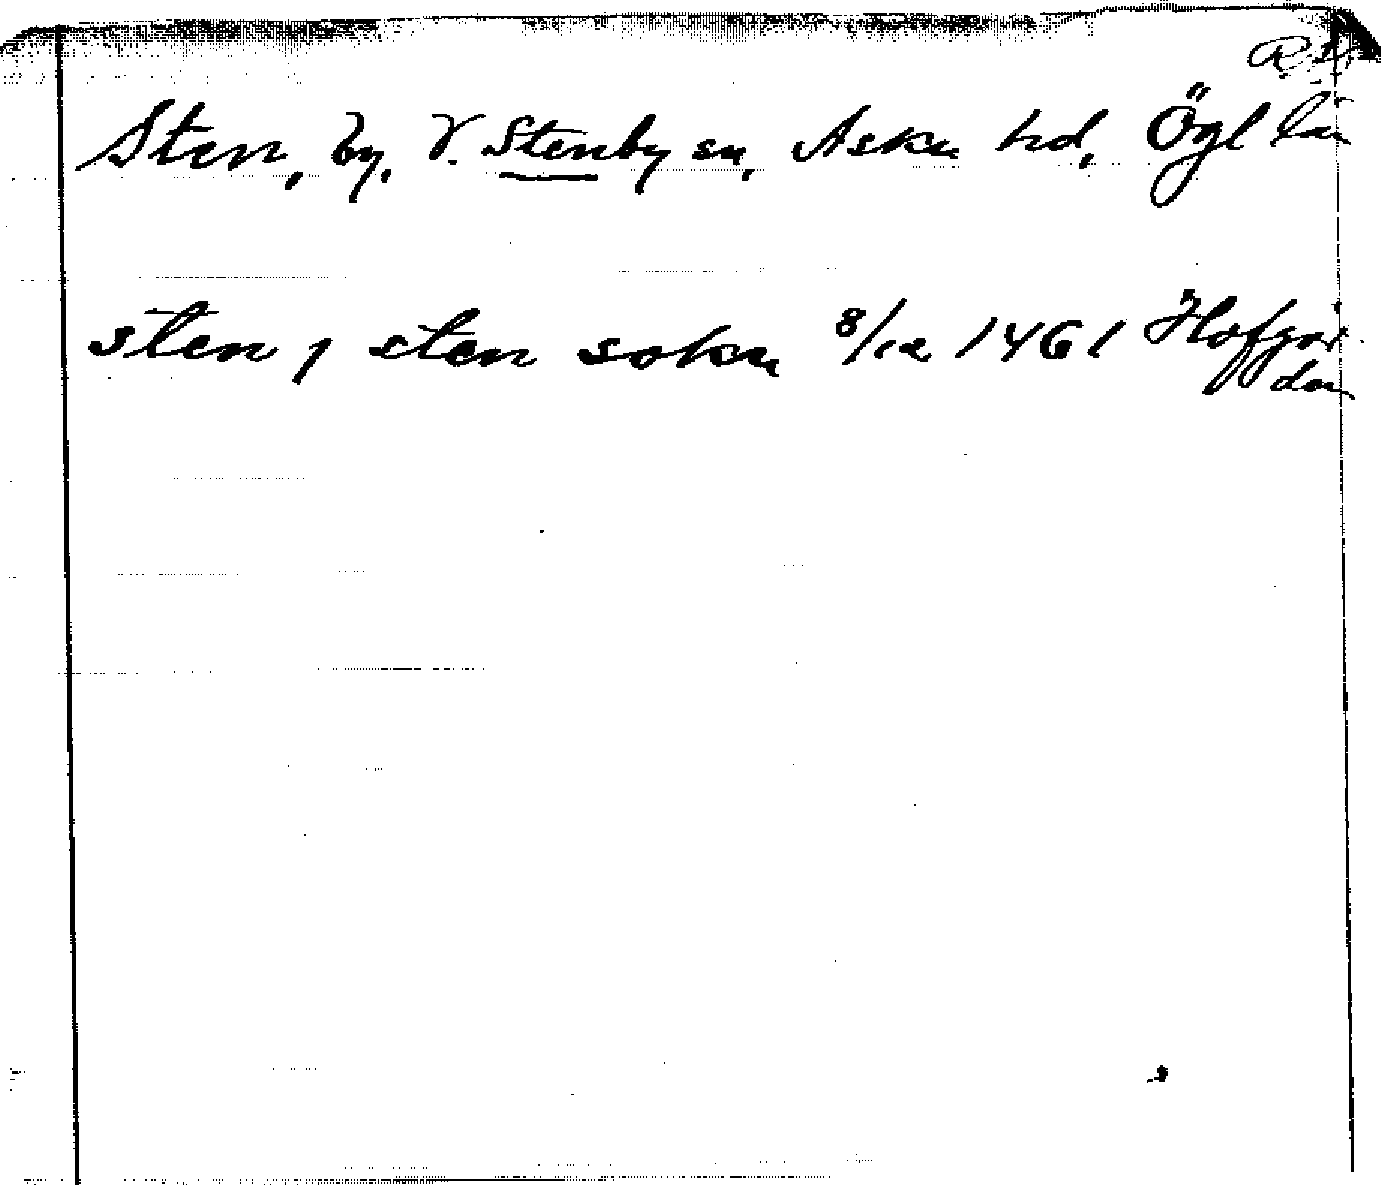 Sten, by, V. Stenby sn, Aska hd, Ögl län
sten j sten sokn 8/12 1461 Hofgår
den